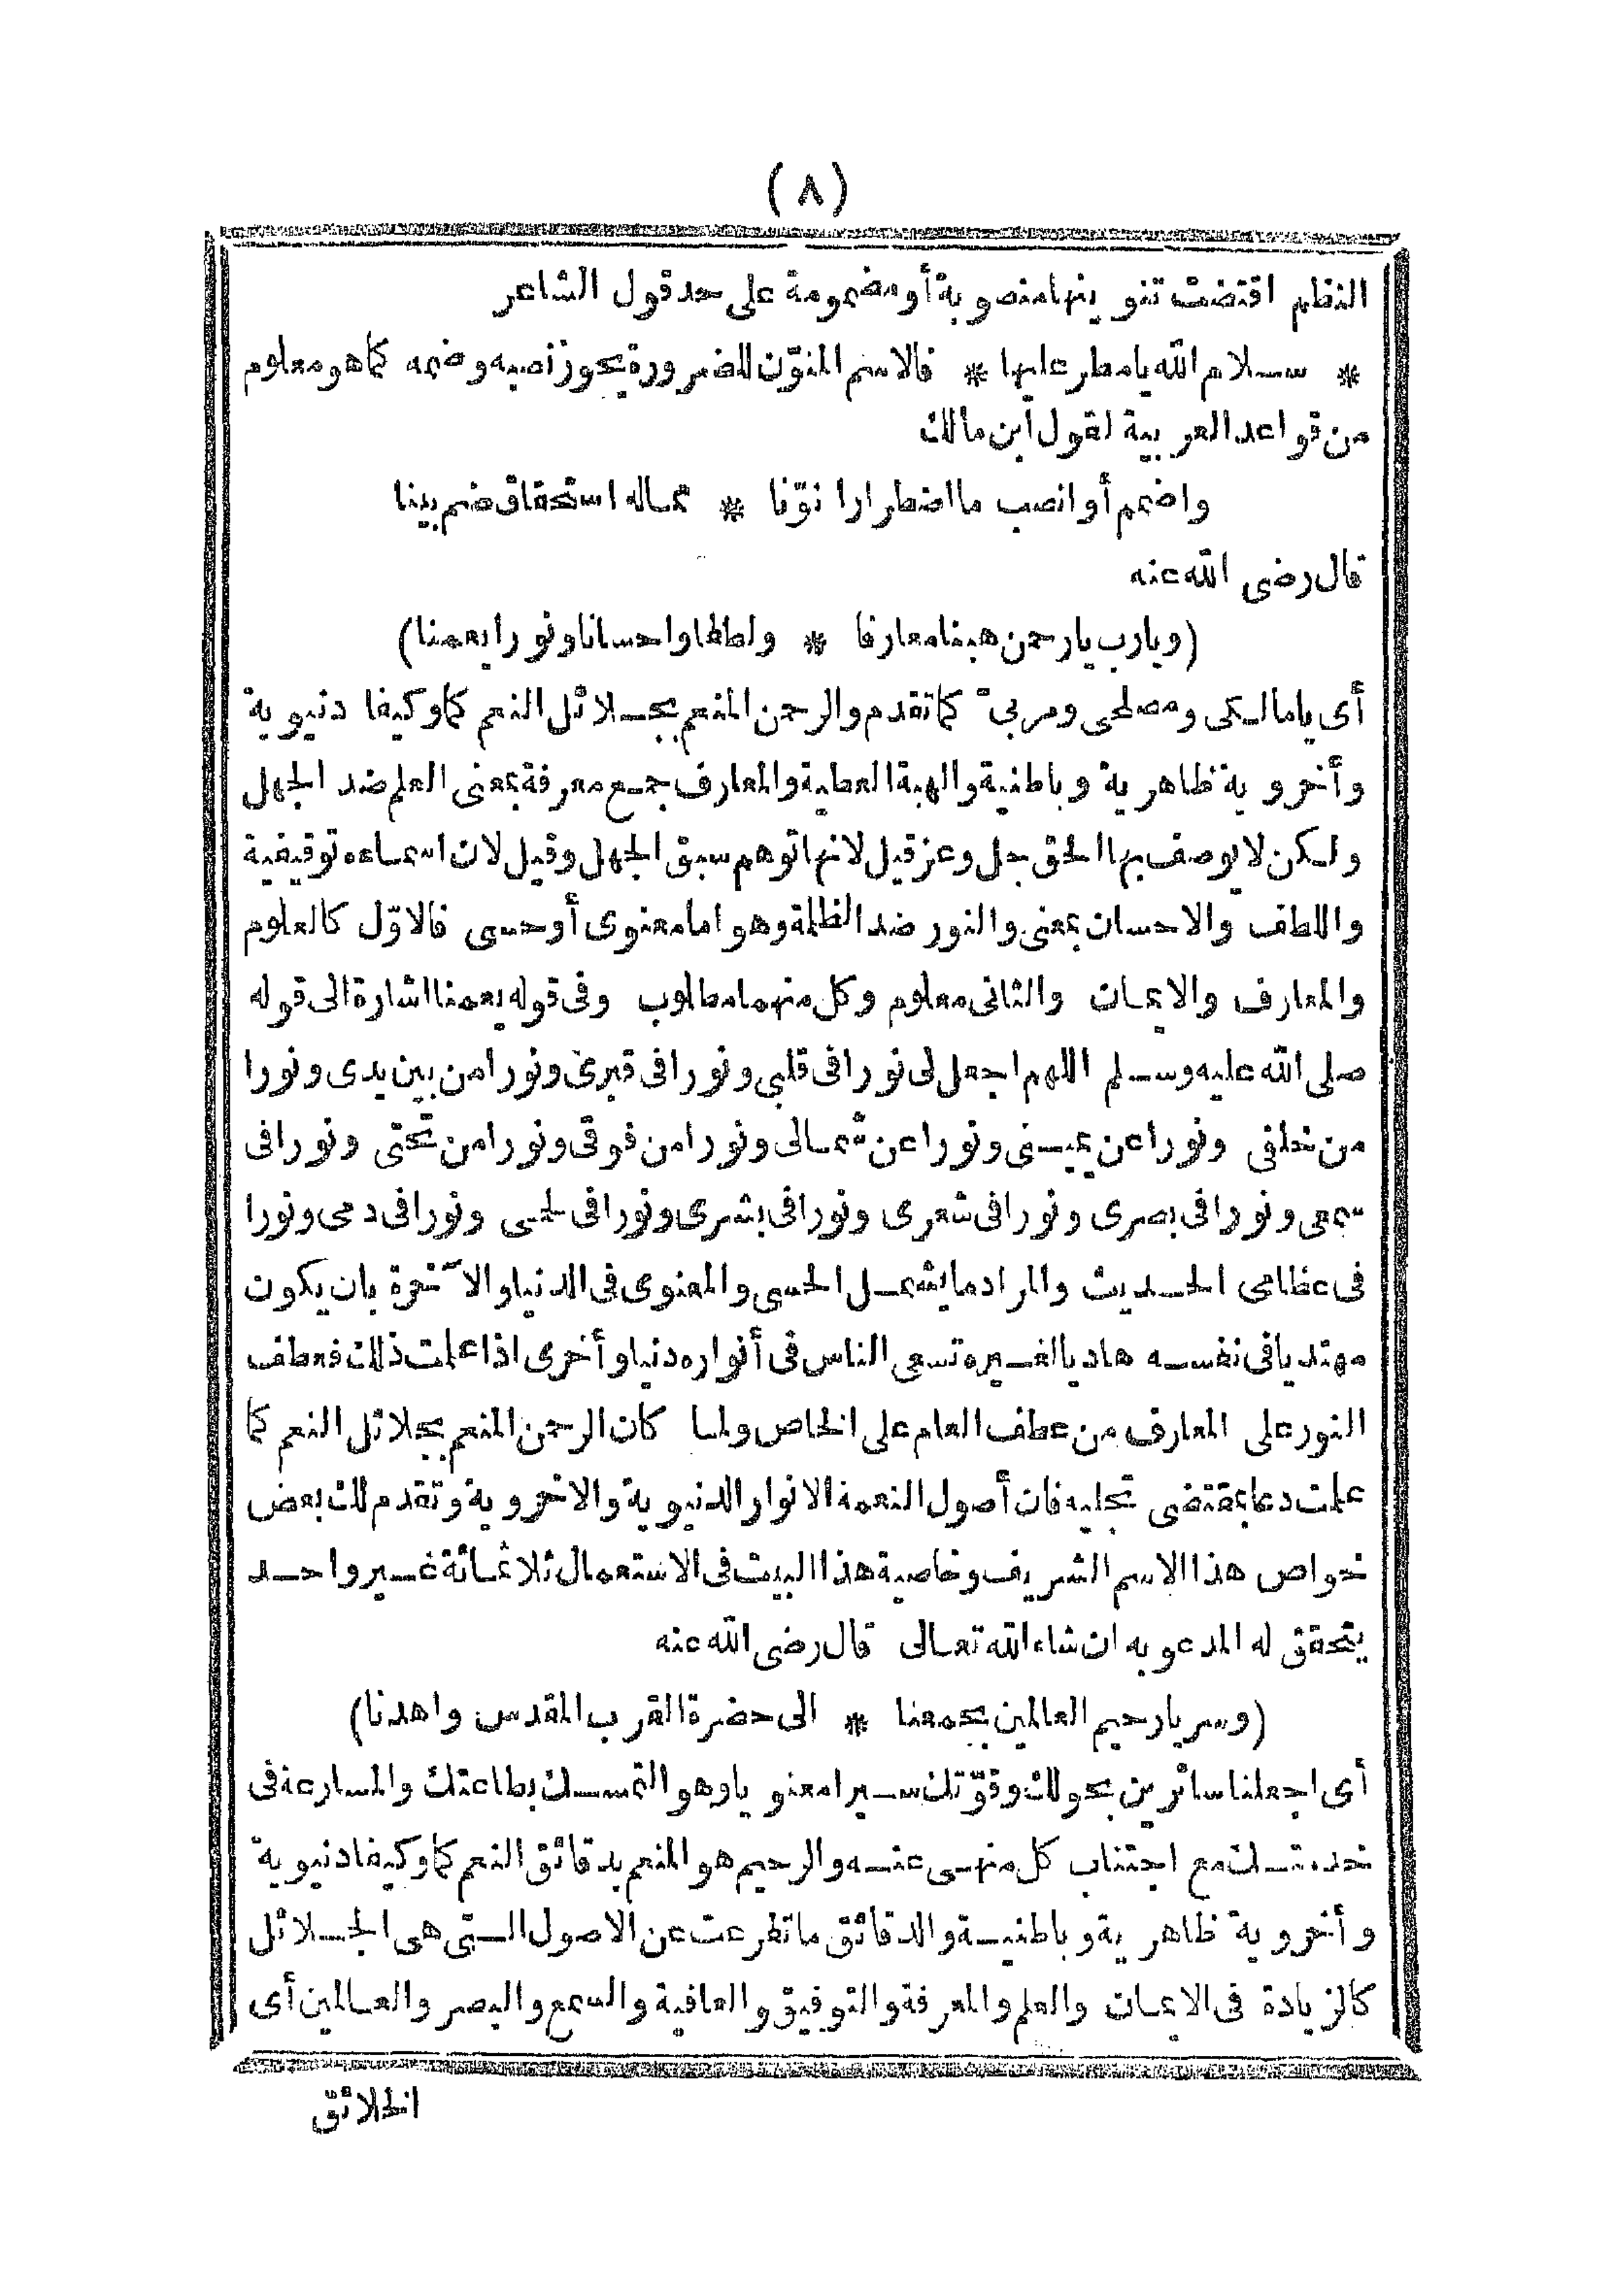 (٨)
النظم اقتضت تنوينها منصوبة أو مضمومة على حد قول الشاعر
* سلام الله يا مطر عليها * فالاسم المنوّن للضرورة يجوز نصبه وضمه كما هو معلوم
من قواعد العربية لقول ابن مالك
واضمم أو انصب ما اضطرارا نوّنا * مما له استحقاق ضم بينا
قال رضى الله عنه
(ويارب يارحمن هبنا معارفا * ولطفا واحسانا ونورا يعمنا)
أى يا مالكى ومصلحى ومربىّ كما تقدم والرحمن المنعم بجلائل النعم كما وكيفا دنيوية
وأخروية ظاهرية وباطنية والهبة العطية والمعارف جمع معرفة بمعنى العلم ضد الجهل
ولكن لا يوصف بها الحق جل وعز قيل لانها توهم سبق الجهل وقيل لان اسماءه توقيفية
واللطف والاحسان بمعنى والنور ضد الظلمة وهو اما معنوى أو حسى فالاوّل كالعلوم
والمعارف والايمان والثانى معلوم وكل منهما مطلوب وفى قوله يعمنا اشارة الى قوله
صلى الله عليه وسلم اللهم اجعل لى نورا فى قلبى ونورا فى قبرى ونورا من بين يدى ونورا
من خلفى ونورا عن يمينى ونورا عن شمالى ونورا من فوقى ونورا من تحتى ونورا فى
سمعى ونورا فى بصرى ونورا فى شعرى ونورا فى بشرى ونورا فى لحمى ونورا فى دمى ونورا
فى عظامى الحديث والمراد ما يشمل الحسى والمعنوى فى الدنيا والآخرة بان يكون
مهتديا فى نفسه هاديا لغيره تسعى الناس فى أنواره دنيا وأخرى اذا علمت ذلك فعطف
النور على المعارف من عطف العام على الخاص ولما كان الرحمن المنعم بجلائل النعم كما
علمت دعا بمقتضى تجليه فان أصول النعمة الانوار الدنيوية والاخروية وتقدم لك بعض
خواص هذا الاسم الشريف وخاصية هذا البيت فى الاستعمال ثلاثمائة غير واحد
يتحقق له المدعو به ان شاء الله تعالى قال رضى الله عنه
(وسر يا رحيم العالمين بجمعنا * الى حضرة القرب المقدس واهدنا)
أى اجعلنا سائرين بحولك وقوّتك سيرا معنويا وهو التمسك بطاعتك والمسارعة فى
خدمتك مع اجتناب كل منهى عنه والرحيم هو المنعم بدقائق النعم كما وكيفا دنيوية
وأخروية ظاهرية وباطنية والدقائق ما تفرعت عن الاصول التى هى الجلائل
كالزيادة فى الايمان والعلم والمعرفة والتوفيق والعافية والسمع والبصر والعالمين أى
الخلائق